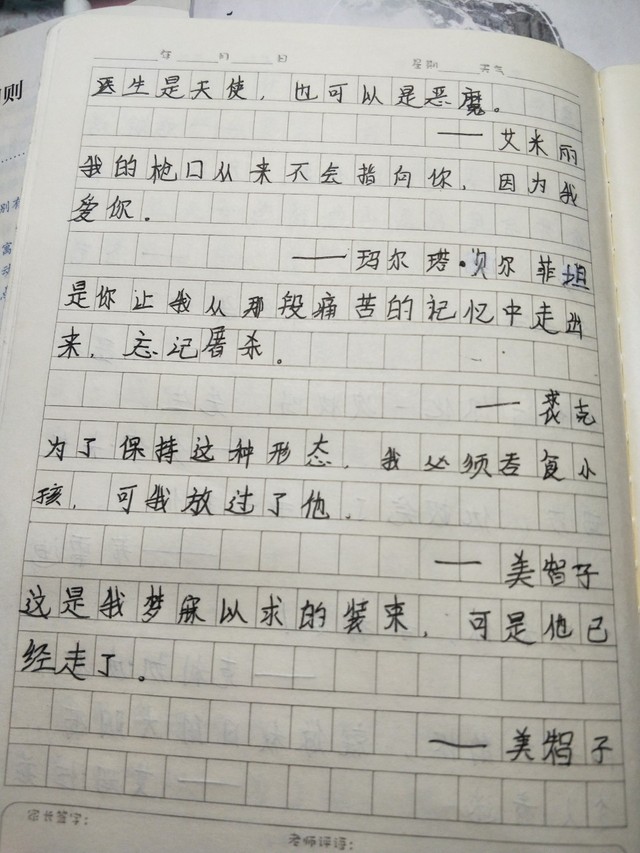 年 月 日 星期 天气
医生是天使，也可以是恶魔。
——艾米丽
我的枪口从来不会指向你，因为我
爱你。
——玛尔塔·贝尔菲坦
是你让我从那段痛苦的记忆中走出
来，忘记屠杀。
——裘克
为了保持这种形态，我必须吞食小
孩，可我放过了他.
——美智子
这是我梦寐以求的装束，可是他已
经走了。
——美智子
家长签字：
老师评语：
则